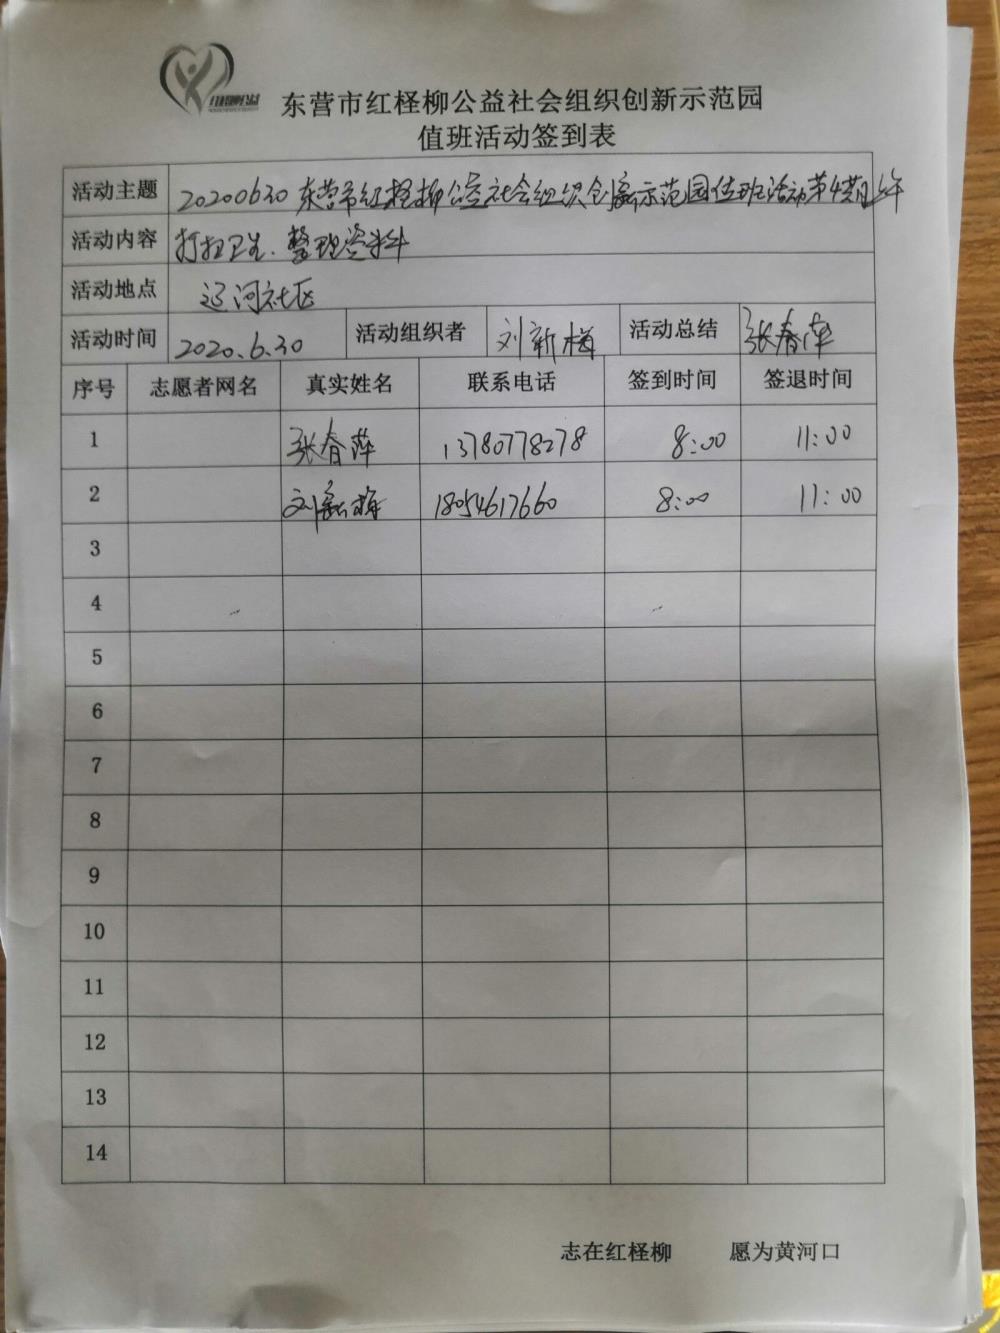 红柽柳公益
东营市红柽柳公益社会组织创新示范园
值班活动签到表
活动主题 20200630东营市红柽柳公益社会组织创新示范园值班活动第4期上午
活动内容 打扫卫生、整理资料
活动地点 辽河社区
活动时间 2020.6.30 活动组织者 刘新梅 活动总结 张春萍
序号 志愿者网名 真实姓名 联系电话 签到时间 签退时间
1 张春萍 13780778278 8:00 11:00
2 刘新梅 18054617660 8:00 11:00
3
4
5
6
7
8
9
10
11
12
13
14
志在红柽柳 愿为黄河口